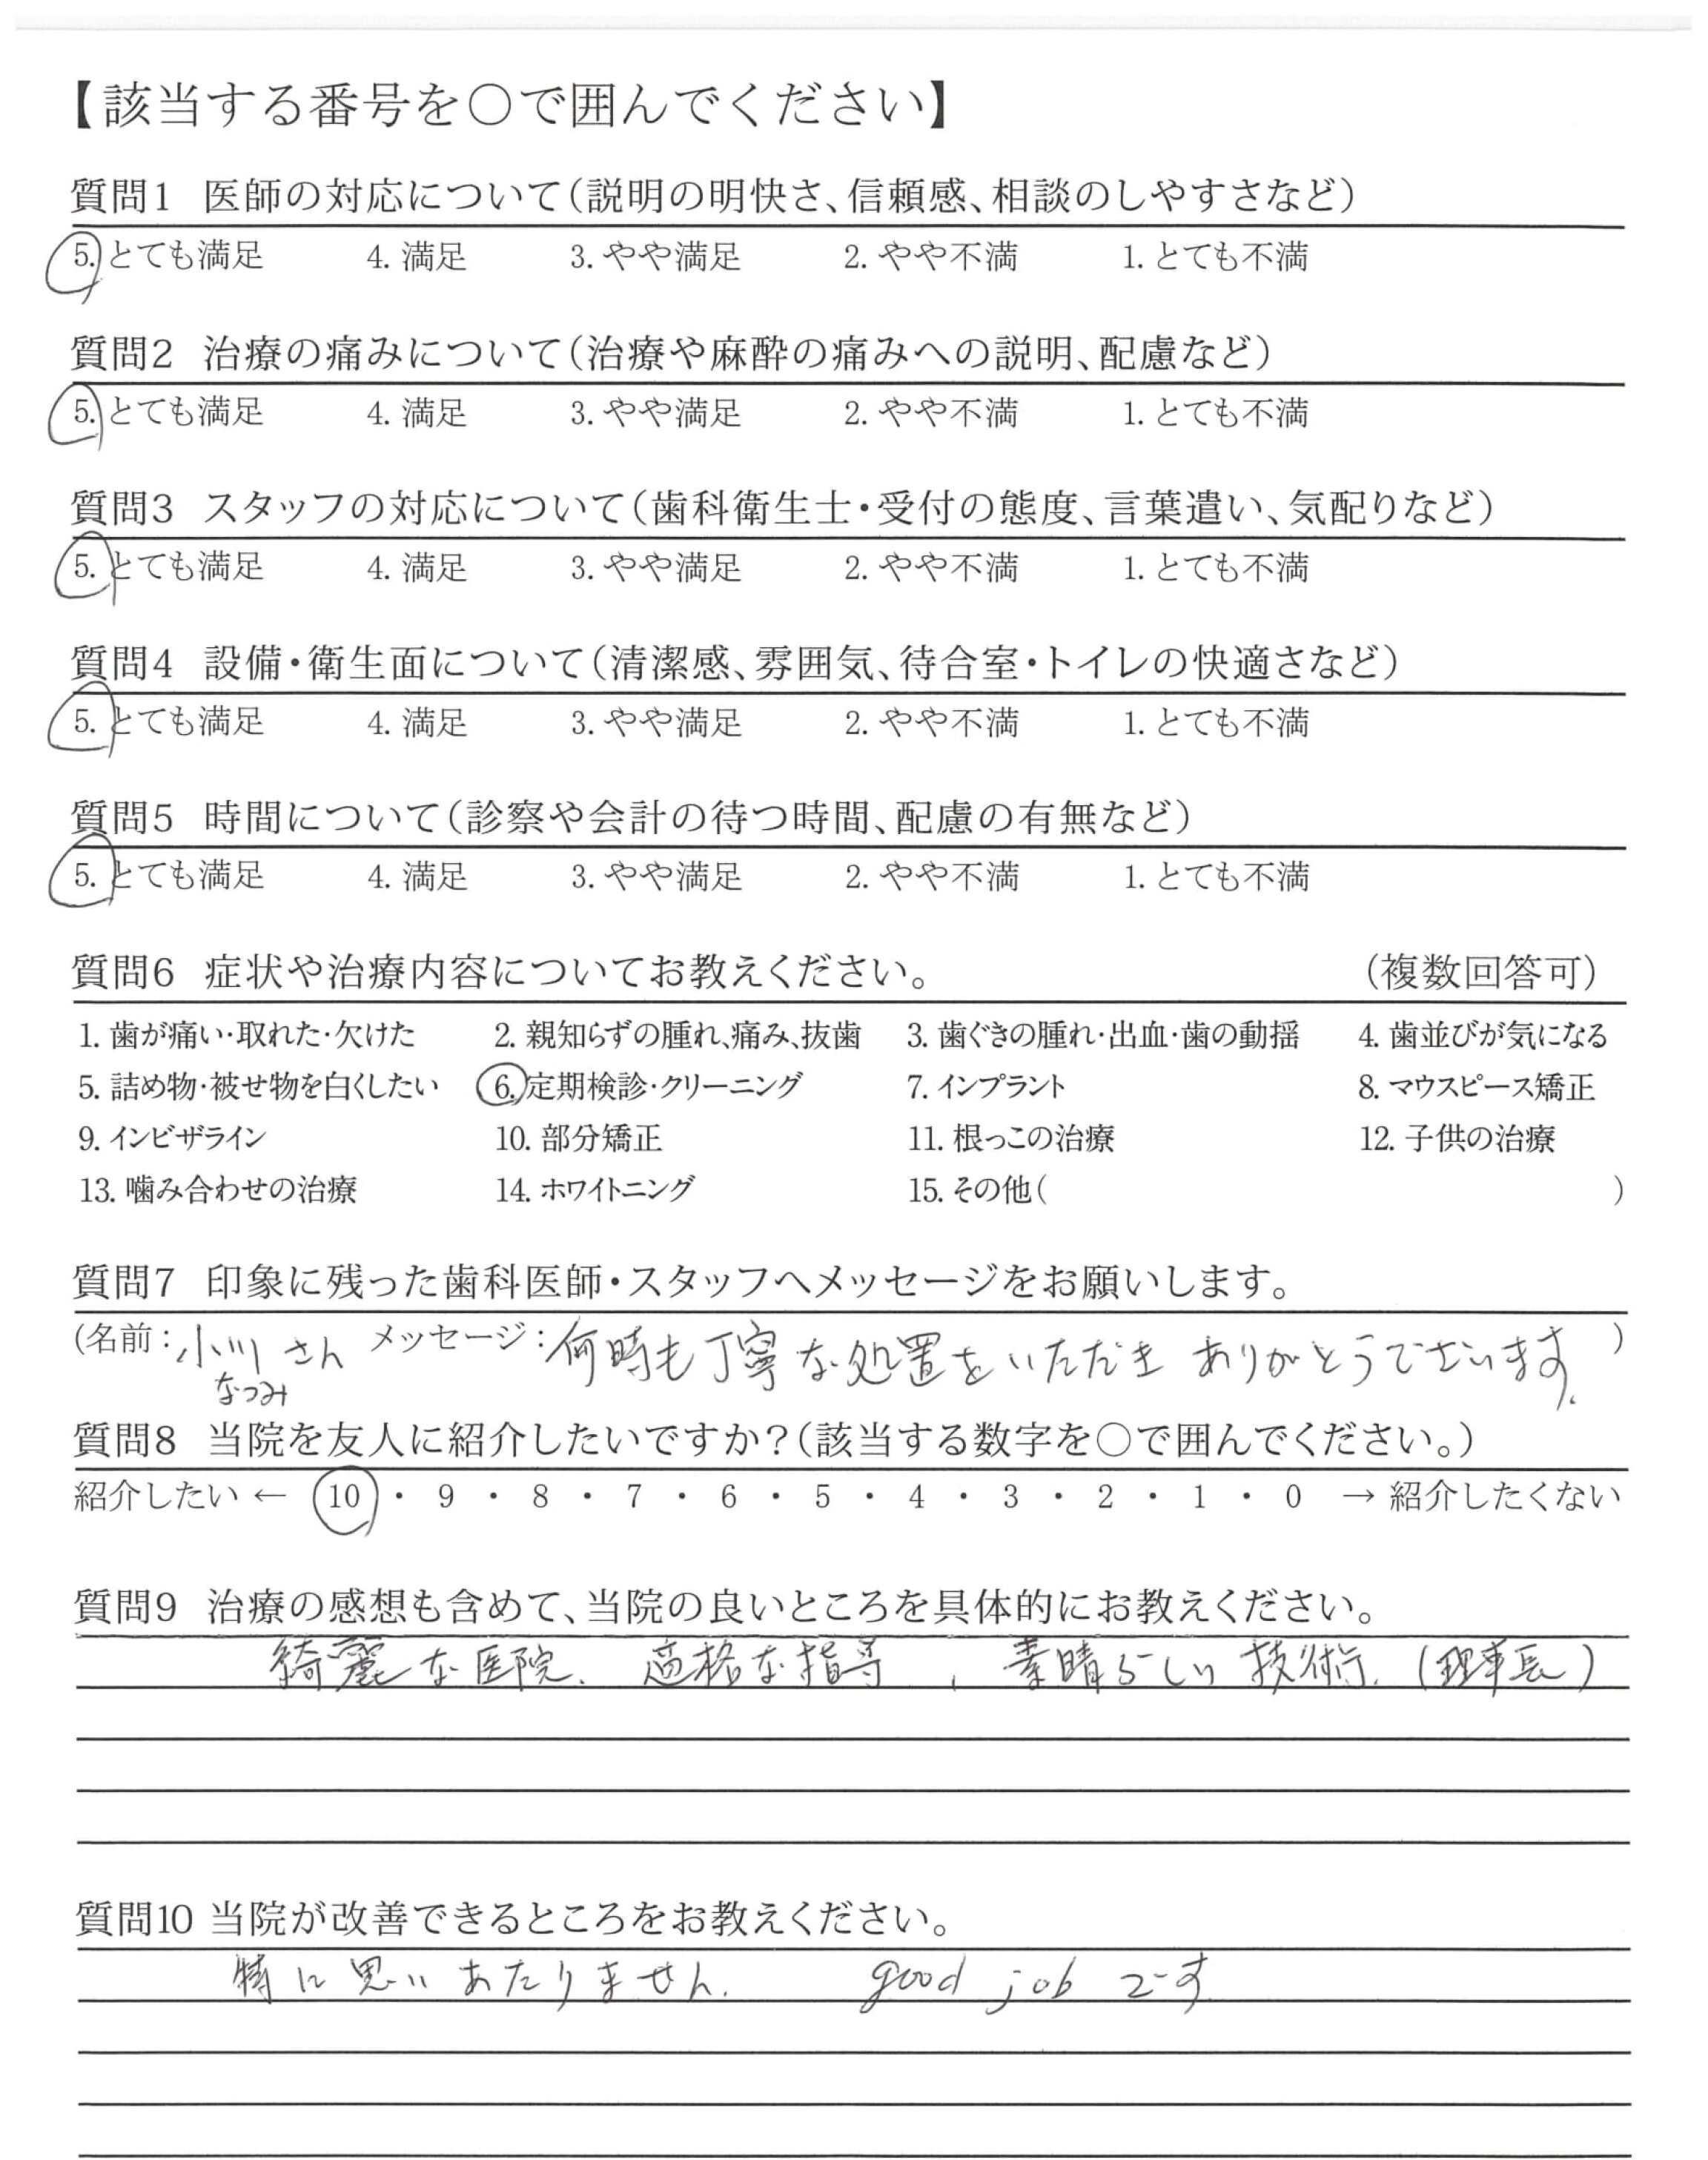 【該当する番号を○で囲んでください】
質問1 医師の対応について(説明の明快さ、信頼感、相談のしやすさなど)
5. とても満足 4. 満足 3. やや満足 2. やや不満 1. とても不満
質問2 治療の痛みについて(治療や麻酔の痛みへの説明、配慮など)
5. とても満足 4. 満足 3. やや満足 2. やや不満 1. とても不満
質問3 スタッフの対応について(歯科衛生士・受付の態度、言葉遣い、気配りなど)
5. とても満足 4. 満足 3. やや満足 2. やや不満 1. とても不満
質問4 設備・衛生面について(清潔感、雰囲気、待合室・トイレの快適さなど)
5. とても満足 4. 満足 3. やや満足 2. やや不満 1. とても不満
質問5 時間について(診察や会計の待つ時間、配慮の有無など)
5. とても満足 4. 満足 3. やや満足 2. やや不満 1. とても不満
質問6 症状や治療内容についてお教えください。 (複数回答可)
1. 歯が痛い・取れた・欠けた 2. 親知らずの腫れ、痛み、抜歯 3. 歯ぐきの腫れ・出血・歯の動揺 4. 歯並びが気になる
5. 詰め物・被せ物を白くしたい 6. 定期検診・クリーニング 7. インプラント 8. マウスピース矯正
9. インビザライン 10. 部分矯正 11. 根っこの治療 12. 子供の治療
13. 噛み合わせの治療 14. ホワイトニング 15. その他( )
質問7 印象に残った歯科医師・スタッフへメッセージをお願いします。
(名前:小川さん メッセージ:何時も丁寧な処置をいただき ありがとうございます。)
なつみ
質問8 当院を友人に紹介したいですか?(該当する数字を○で囲んでください。)
紹介したい ← 10 ・ 9 ・ 8 ・ 7 ・ 6 ・ 5 ・ 4 ・ 3 ・ 2 ・ 1 ・ 0 → 紹介したくない
質問9 治療の感想も含めて、当院の良いところを具体的にお教えください。
綺麗な医院、適格な指導、素晴らしい技術。(理事長)
質問10 当院が改善できるところをお教えください。
特に思いあたりません。 good job です